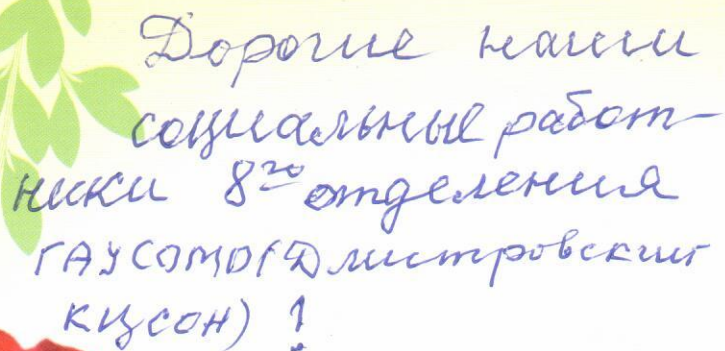 Дорогие наши
социальные работ-
ники 8го отделения
ГАУСОМО(Дмитровский
КЦСОН) !